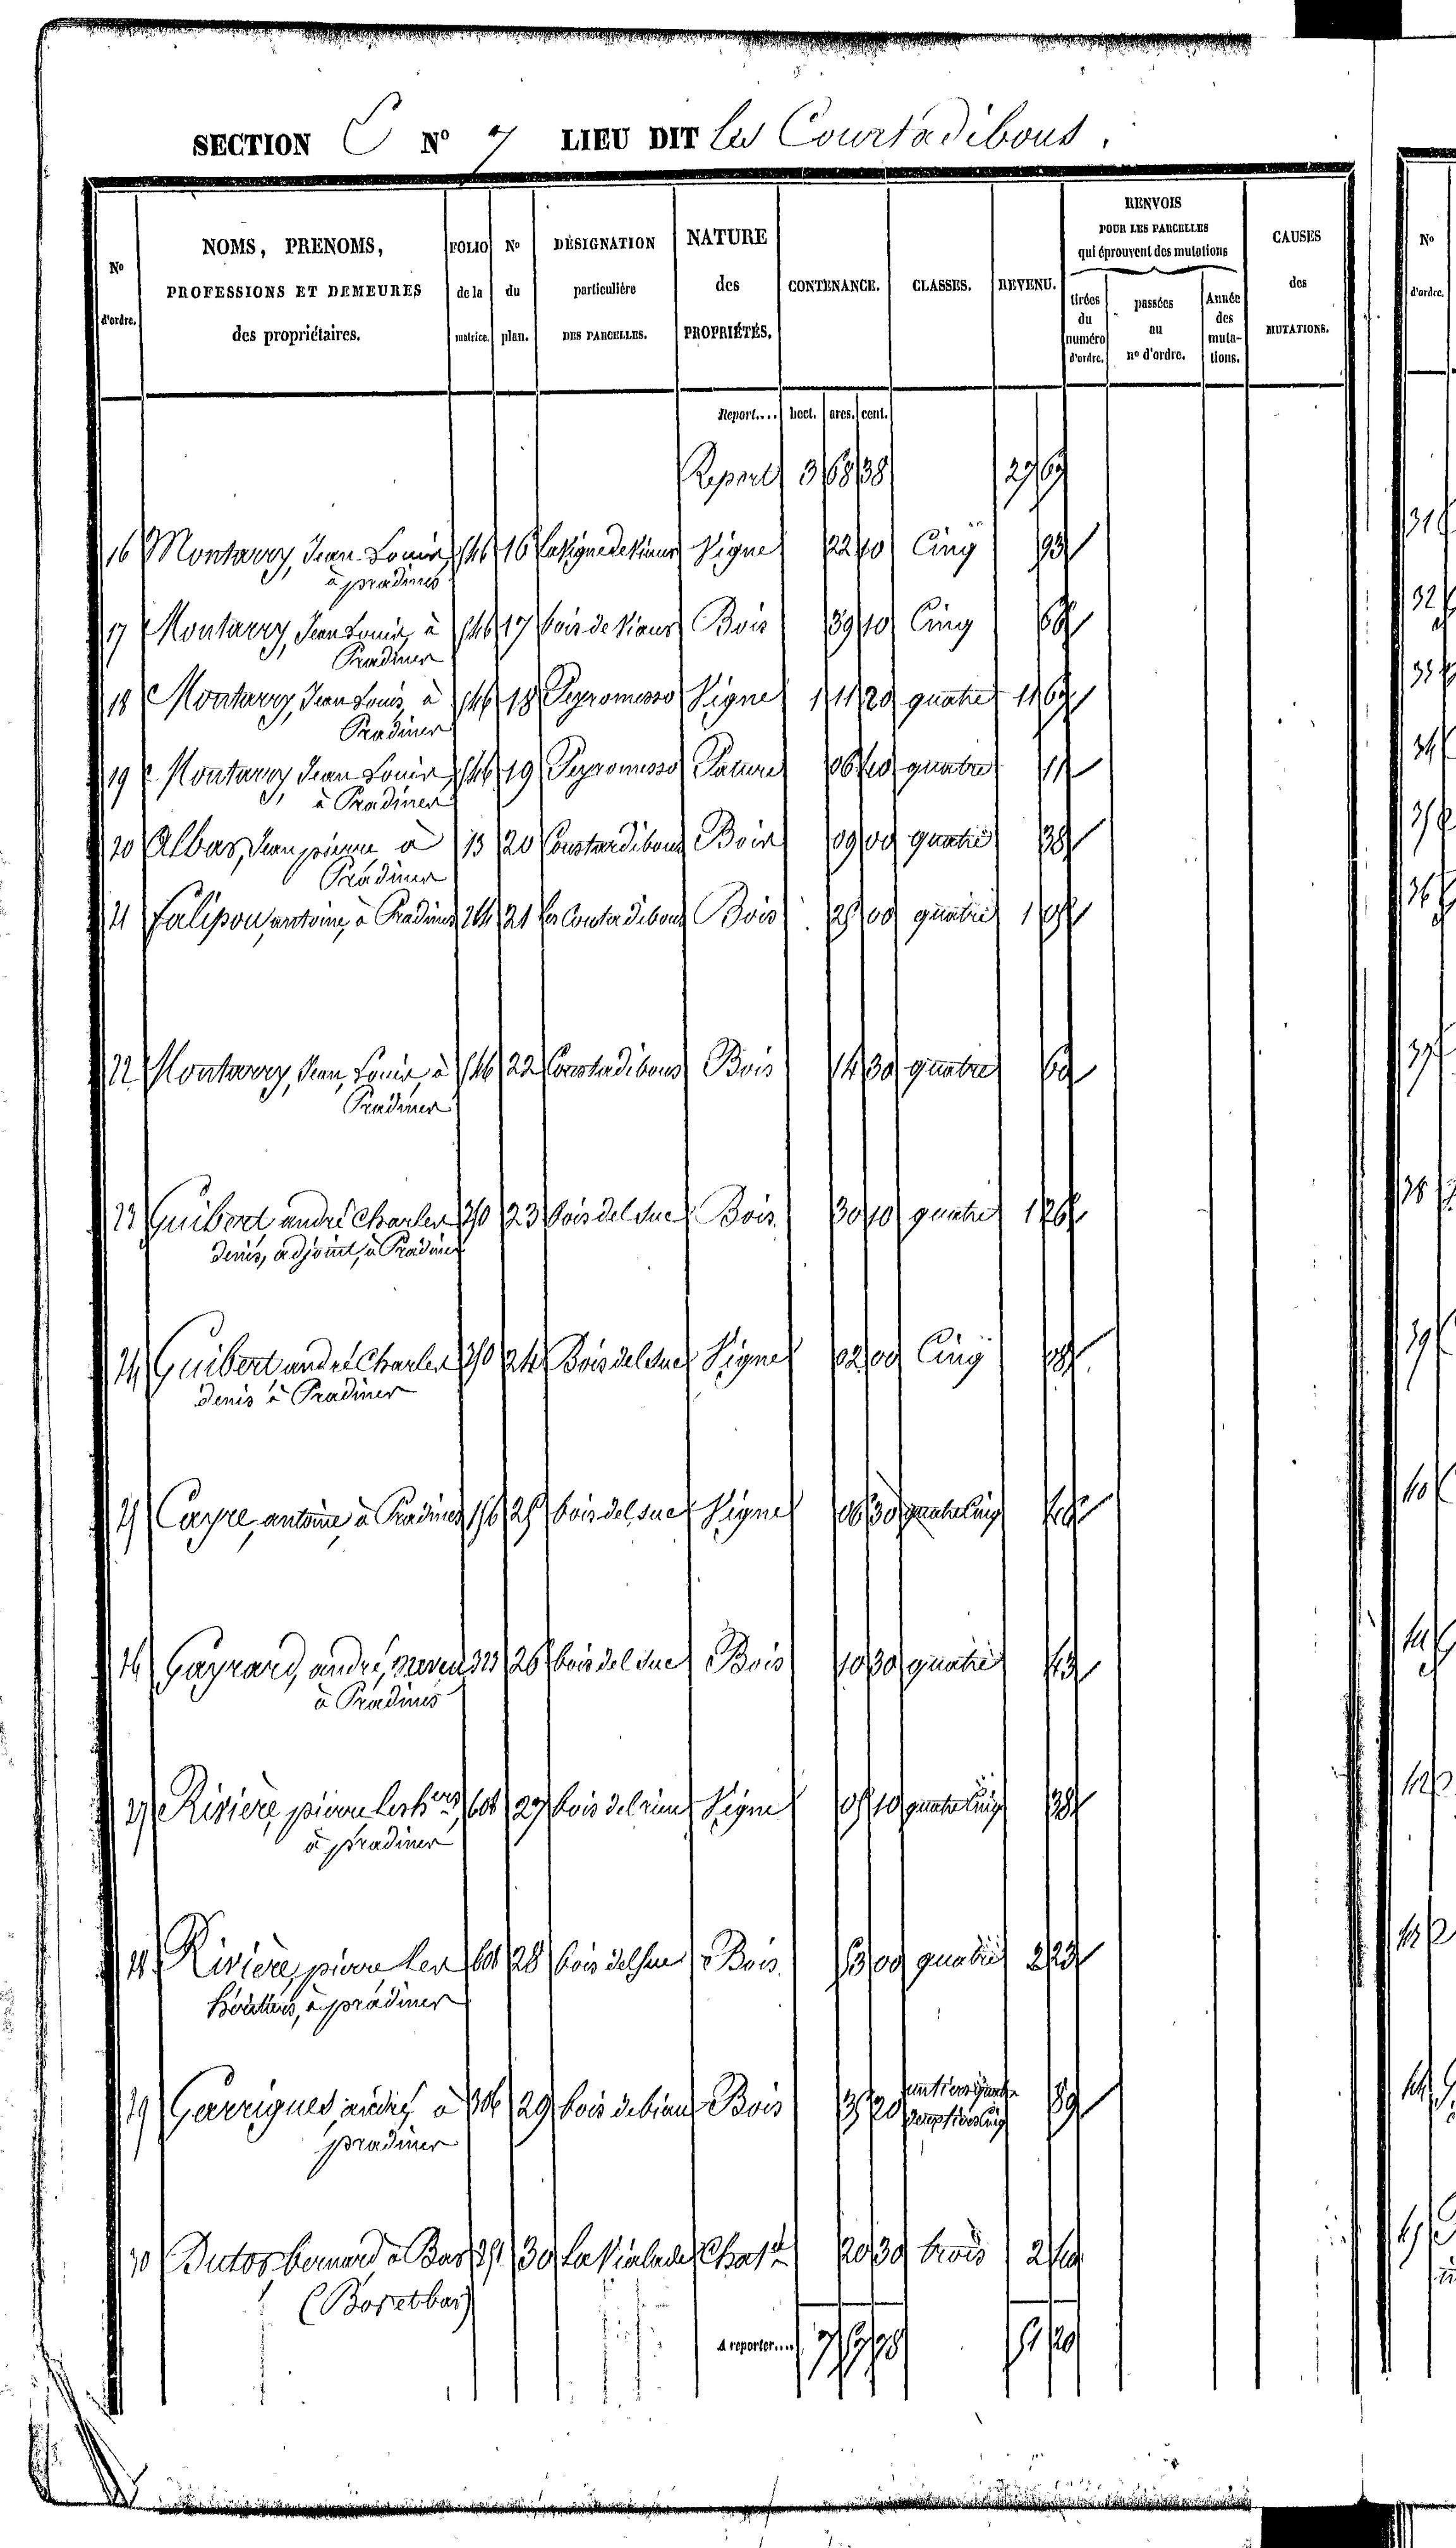 SECTION C N° 7 LIEU DIT Les Courtadibous.
N° d'ordre.
NOMS, PRENOMS, PROFESSIONS ET DEMEURES des propriétaires.
FOLIO de la matrice.
N° du plan.
DÉSIGNATION particulière DES PARCELLES.
NATURE des PROPRIÉTÉS.
CONTENANCE.
CLASSES.
REVENU.
RENVOIS POUR LES PARCELLES qui éprouvent des mutations
tirées du numéro d'ordre.
passées au n° d'ordre.
Année des mutations.
CAUSES des MUTATIONS.
Report.... hect. ares. cent.
Report 3 68 38 27 67
16 Montarry, Jean Louis, 546 16 la Vigne de Viaur Vigne 22 10 Cinq 93
à pradines
17 Montarry, Jean Louis, à 546 17 bois de Viaur Bois 39 10 Cinq
Pradines
18 Montarry, Jean Louis, à 546 18 Peyromusso Vigne 1 11 20 quatre 11 67
Pradines
19 Montarry, Jean Louis, 546 19 Peyromusso Pature 06 40 quatre 11
à Pradines
20 Albar, Jean pierre à 13 20 Courtadibous Bois 09 00 quatre 38
Pradines
21 Falipou, antoine, à Pradines 264 21 les Courtadibous Bois 25 00 quatre 1 05
22 Montarry, Jean Louis, à 546 22 Courtadibous Bois 14 30 quatre 60
Pradines
23 Guibert andré Charles 350 23 bois del suc Bois 30 10 quatre 1 26
denis, adjoint, à Pradines
24 Guibert andré Charles 350 24 Bois del suc Vigne 02 00 Cinq 08
denis à Pradines
25 Cayre, antoine, à Pradines 156 25 bois del suc Vigne 06 30 quatre Cinq
26 Gayrard, andré, neveu 323 26 bois del suc Bois 10 30 quatre 43
à Pradines
27 Rivière, pierre les hers 601 27 bois del Vigne 05 10 quatre Cinq 38
à pradines
28 Rivière, pierre les 601 28 bois del suc Bois 53 00 quatre 2 23
héritiers, à pradines
29 Garrigues, andré, à 306 29 bois de biau Bois 35 20 un tiers quatre 89
pradines deux tiers Cinq
30 Dutos, bernard à Bar 251 30 La Vialade Chatie 20 30 trois 2 40
(Boretbar)
A reporter.... 7 57 78 51 20
N° d'ordre.
31
32
33
34
35
36
37
38
39
40
41
42
43
44
45